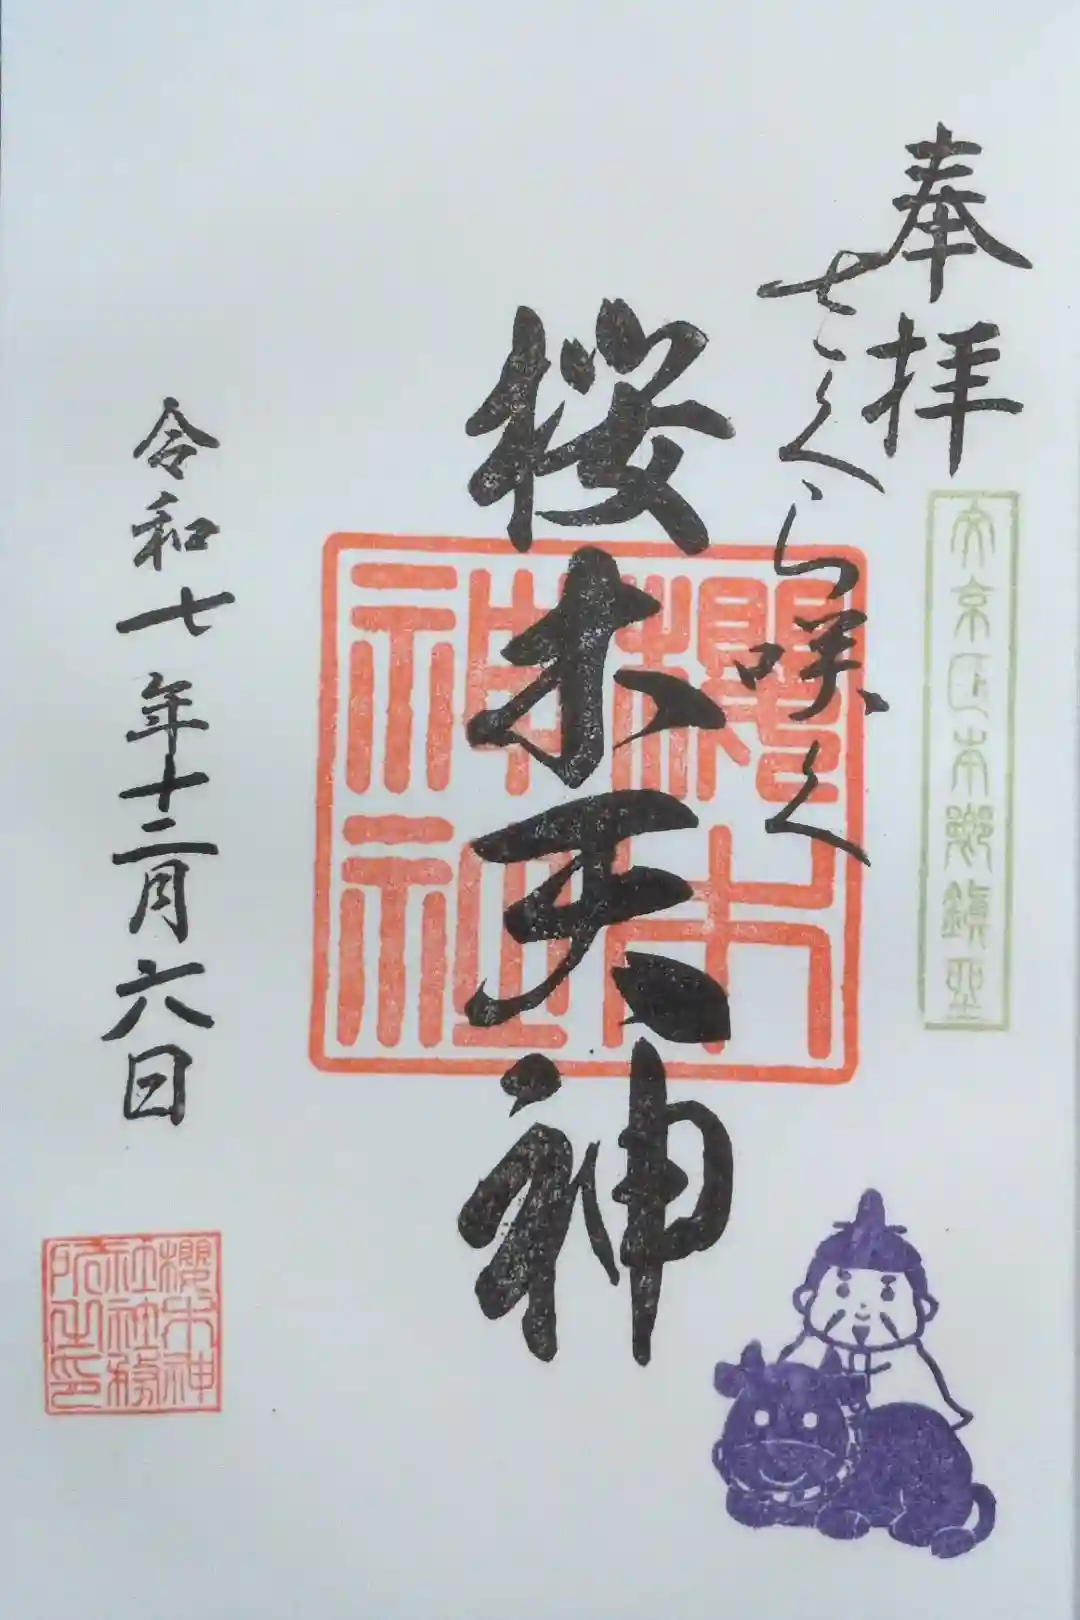 奉拝
文京区本郷鎮座
さくら咲く
桜木天神
櫻木神社
令和七年十二月六日
櫻木神社社務所之印